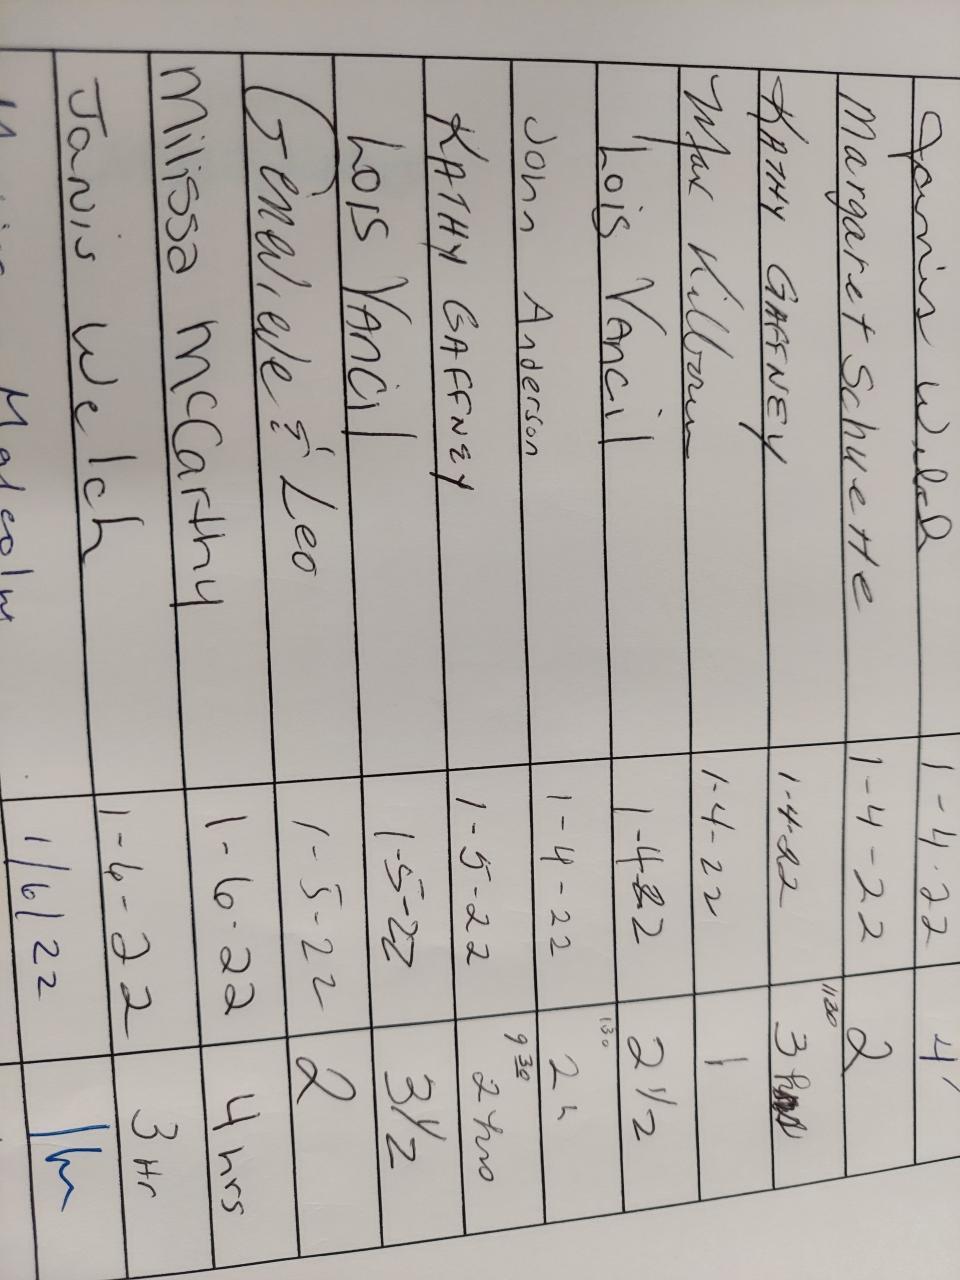 Janis Welch 1-4-22 4
Margaret Schuette 1-4-22 2
KATHY GAFFNEY 1-4-22 1130 3
Max Kilborn 1-4-22 1
Lois Vancil 1-4-22 2 1/2
John Anderson 1-4-22 130 2h
KATHY GAFFNEY 1-5-22 9 30 2 hrs
Lois Vancil 1-5-22 3 1/2
Genevieve & Leo 1-5-22 2
Milissa McCarthy 1-6-22 4 hrs
Janis Welch 1-6-22 3 Hr
Malcolm 1/6/22